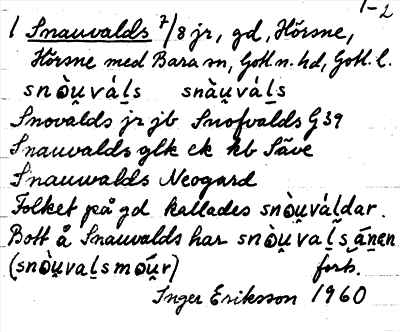 1-2
1 Snauvalds 7/8 jr, gd, Hörsne,
Hörsne med Bara sn, Gotl. n. hd, Gotl. l.
snòu̯váḷs snàu̯váḷs
Snovalds jr jb Snofvalds G 39
Snauvalds glk ek kb Säve
Snauwalds Neogard
Folket på gd kallades snòu̯váḷdar.
Bott å Snauvalds har snòu̯vaḷsā́nen
(snòu̯vaḷsmṓu̯r) fork.
Inger Eriksson 1960